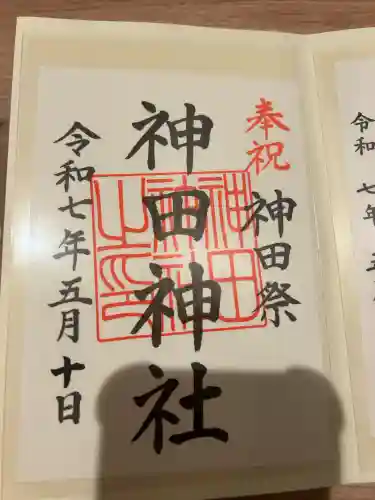 奉祝
神田祭
神田神社
神田神社之印
令和七年五月十日
令和七年五